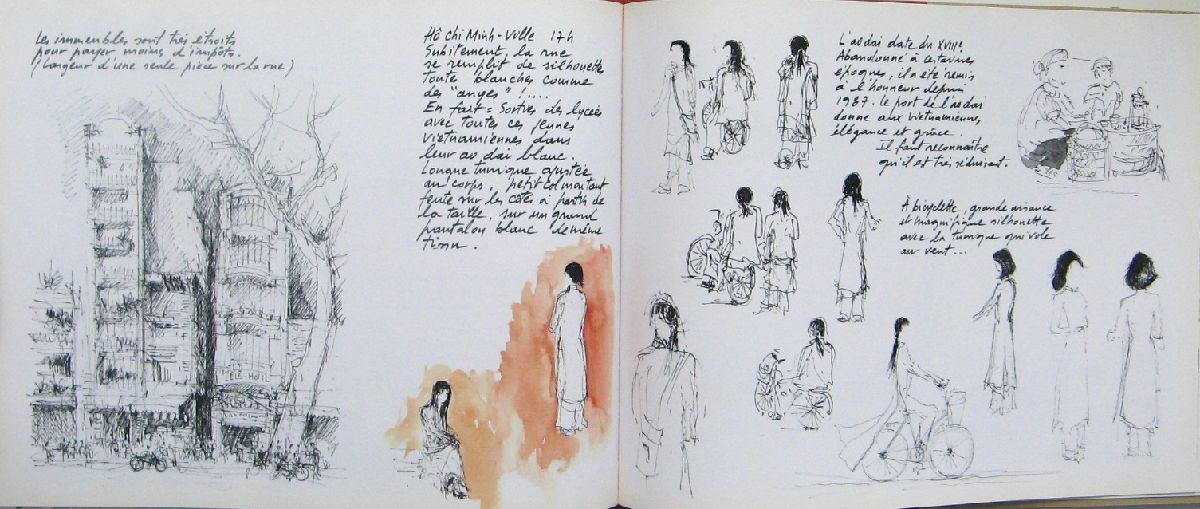 Les immeubles sont très étroits
pour payer moins d'impôts.
(largeur d'une seule pièce sur la rue)
Hô Chi Minh-Ville 17h
Subitement, la rue
se remplit de silhouette
toute blanches comme
des "anges" !....
En fait = Sorties des lycées
avec toutes ces jeunes
Vietnamiennes dans
leur ao dai blanc.
Longue tunique ajustée
au corps, petit col montant
fente sur les côtés à partir de
la taille, sur un grand
pantalon blanc de même
tissu.
L'ao dai date du XVIIIe
Abandonné à certaines
époques, il a été remis
à l'honneur depuis
1987. le port de l'ao dai
donne aux vietnamiennes,
élégance et grâce.
Il faut reconnaître
qu'il est très séduisant.
A bicyclette, grande aisance
et magnifique silhouette
avec la tunique qui vole
au vent...